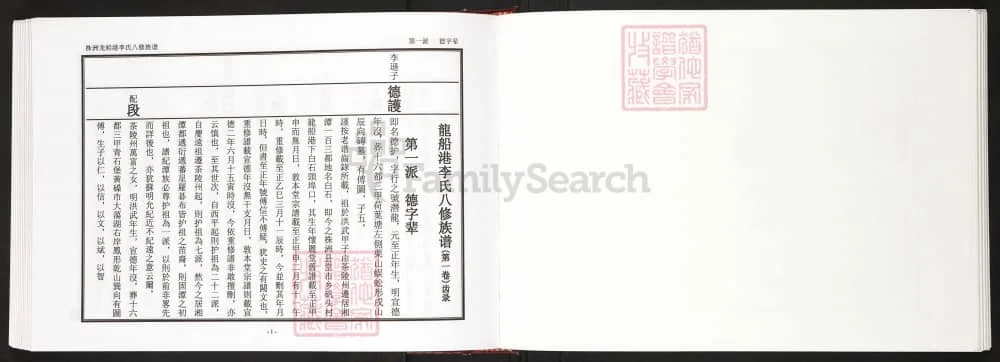 第一派 德字辈
株洲龙船港李氏八修族谱
龍船港李氏八修族谱(第一卷)齿录
第一派 德字辈
李遜子
德護
即名德护,字行之號潛龍,元至正年生,明宣德
年沒,葬十六都三甲荷葉塘左側栗山蜈蚣形戌山
辰向碑墓,有傅圖,子五。
謹按老譜齒錄所載,祖於洪武甲子由茶陵州遷居湘
潭一百三都地名白石,即今之株洲县皇市乡矾头村
龍船港下白石頭埠口,其生年懷麗堂舊譜載至正甲
申而無月日,敦本堂宗譜載至正甲申二月有十一午
時,重修載至正乙巳三月十一辰時,今並刪其年月
日時,但書至正年號傅信不傅疑,犹史之有闕文也,
重修諸譜載宣德年沒無干支月日,敦本堂宗譜則載宣
德二年六月十五寅時沒,今依重修譜非敢擅刪,亦
云慎也,至其世次,自西平起則护祖為二十二派,
自慶遠祖遷茶陵州起,則护祖為七派,然今之居湘
潭都邁衍遷番星羅碁布皆护祖之苗裔,則固潭之初
祖也,譜紀潭族必尊护祖為一派,以則於前非畧先
而詳後也,亦犹蘇明允紀近不紀遠之意云爾。
配
段
茶陵州萬富之女,明洪武年生,宣德年沒,葬十六
都三甲青石堡黃磉市大蕩湖右岸鳳形乾山巽向有圖
傅,生子以仁,以信,以文,以斌,以智
-1-
FamilySearch
猶他家
譜學會
特藏
猶他家
譜學會
特藏